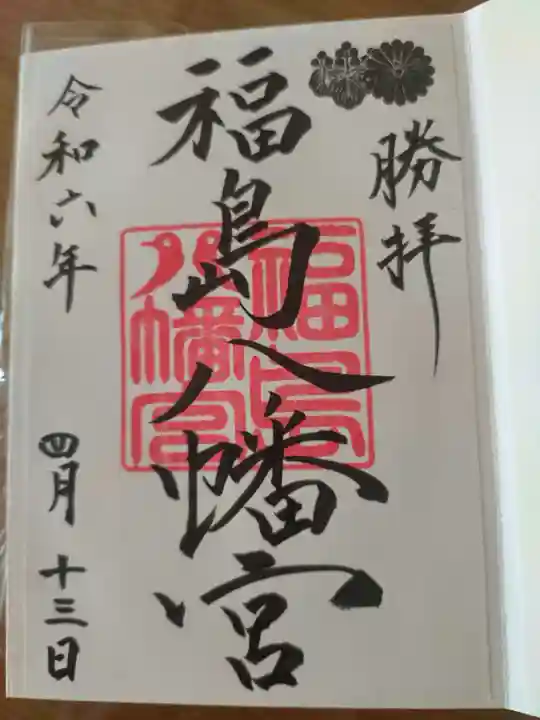 勝拝
福島八幡宮
福島
八幡宮
令和六年
四月十三日